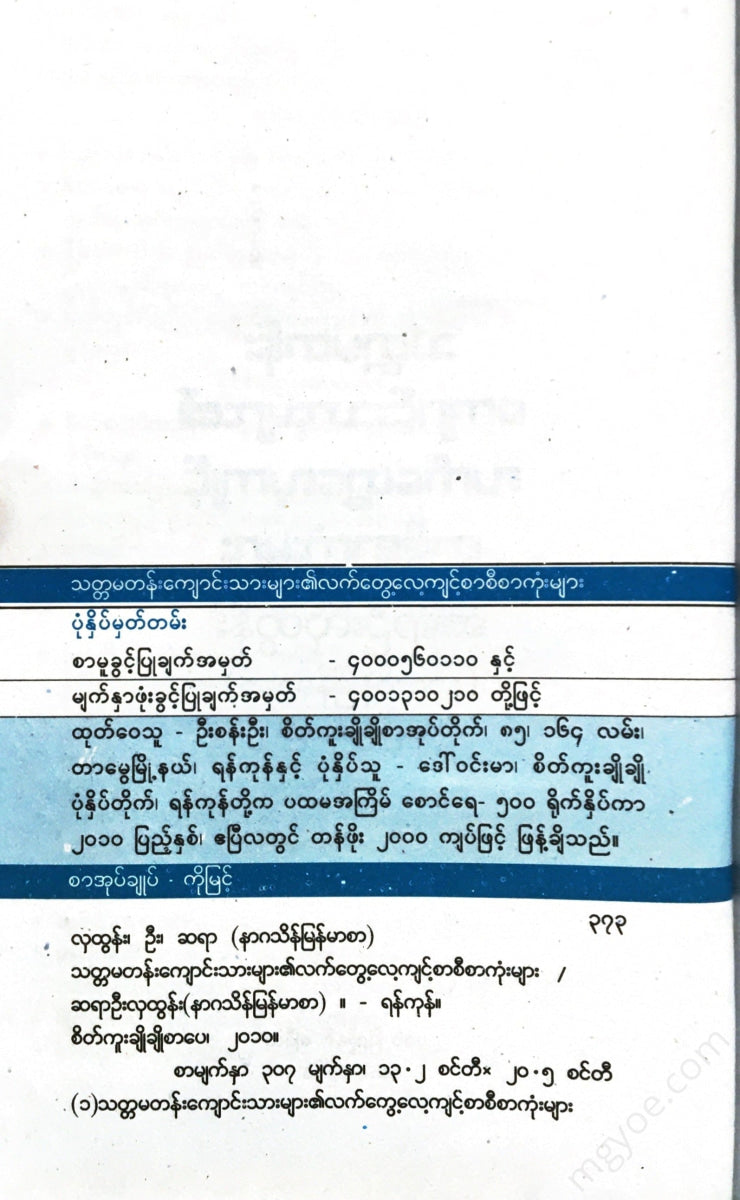 သတ္တမတန်းကျောင်းသားများ၏လက်တွေ့လေ့ကျင့်စာစီစာကုံးများ
ပုံနှိပ်မှတ်တမ်း
စာမူခွင့်ပြုချက်အမှတ် - ၄၀၀၀၅၆၀၁၁၀ နှင့်
မျက်နှာဖုံးခွင့်ပြုချက်အမှတ် - ၄၀၀၁၃၁၀၂၁၀ တို့ဖြင့်
ထုတ်ဝေသူ - ဦးစန်းဦး၊ စိတ်ကူးချိုချိုစာအုပ်တိုက်၊ ၈၅၊ ၁၆၄ လမ်း၊
တာမွေမြို့နယ်၊ ရန်ကုန်နှင့် ပုံနှိပ်သူ - ဒေါ်ဝင်းမာ၊ စိတ်ကူးချိုချို
ပုံနှိပ်တိုက်၊ ရန်ကုန်တို့က ပထမအကြိမ် စောင်ရေ- ၅၀၀ ရိုက်နှိပ်ကာ
၂၀၁၀ ပြည့်နှစ်၊ ဧပြီလတွင် တန်ဖိုး ၂၀၀၀ ကျပ်ဖြင့် ဖြန့်ချိသည်။
စာအုပ်ချုပ် - ကိုမြင့်
၃၇၃
လှထွန်း၊ ဦး၊ ဆရာ (နာဂသိန်မြန်မာစာ)
သတ္တမတန်းကျောင်းသားများ၏လက်တွေ့လေ့ကျင့်စာစီစာကုံးများ /
ဆရာဦးလှထွန်း(နာဂသိန်မြန်မာစာ) ။ - ရန်ကုန်။
စိတ်ကူးချိုချိုစာပေ၊ ၂၀၁၀။
စာမျက်နှာ ၃၀၇ မျက်နှာ၊ ၁၃.၂ စင်တီ× ၂၀.၅ စင်တီ
(၁)သတ္တမတန်းကျောင်းသားများ၏လက်တွေ့လေ့ကျင့်စာစီစာကုံးများ
mgyoe.com